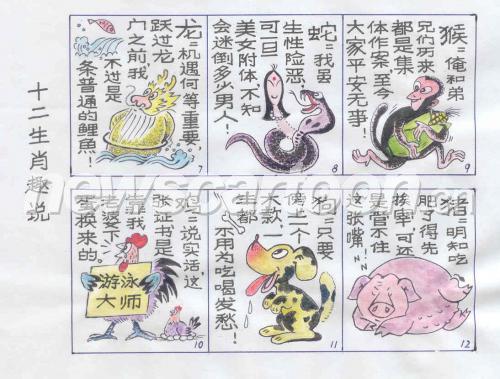 十二生肖趣说
龙=机遇何等重要,
跃过龙
门之前,我
不过是
条普通的鲤鱼!
7
蛇=我虽
生性险恶,
可一旦
美女附体,不知
会迷倒多少男人!
8
猴=俺和弟
兄们历来
都是集
体作案,至今
大家平安无事!
9
鸡=说实话,这
张证书是
靠我
老婆下
蛋换来的。
游泳
大师
10
狗=只要
傍上个
大款,一
生都
不用为吃喝发愁!
11
猪=明知吃
肥了得先
挨宰,可还
是管不住
这张嘴!
12